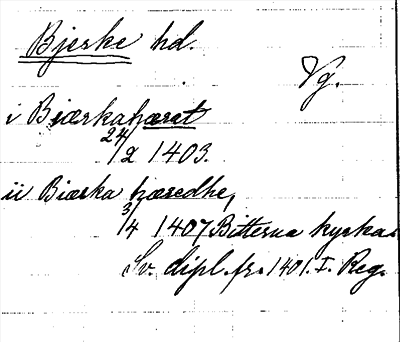 Bjerke hd.
Vg.
i Biærkahæret
24/2 1403.
ii Biærka hæredhe,
3/4 1407 Bitterna kyrka.
Sv. dipl. fr. 1401. I. Reg.